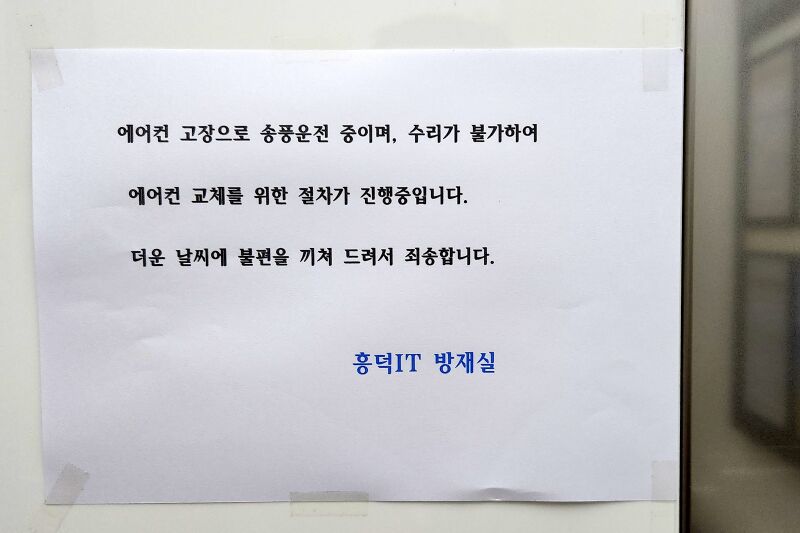 에어컨 고장으로 송풍운전 중이며, 수리가 불가하여
에어컨 교체를 위한 절차가 진행중입니다.
더운 날씨에 불편을 끼쳐 드려서 죄송합니다.
흥덕IT 방재실